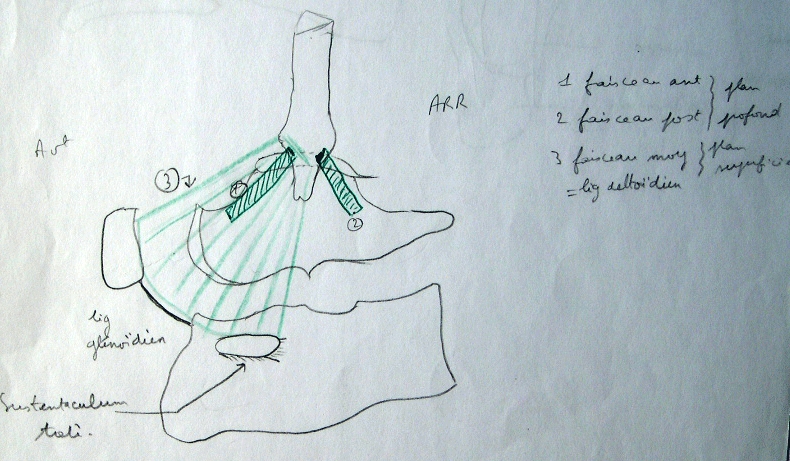 1 faisceau ant } plan
2 faisceau post } profond
3 faisceau moy } plan
superficie
= lig deltoïdien
ARR
Avt
3
1
2
lig
glénoïdien
Sustentaculum
tali.